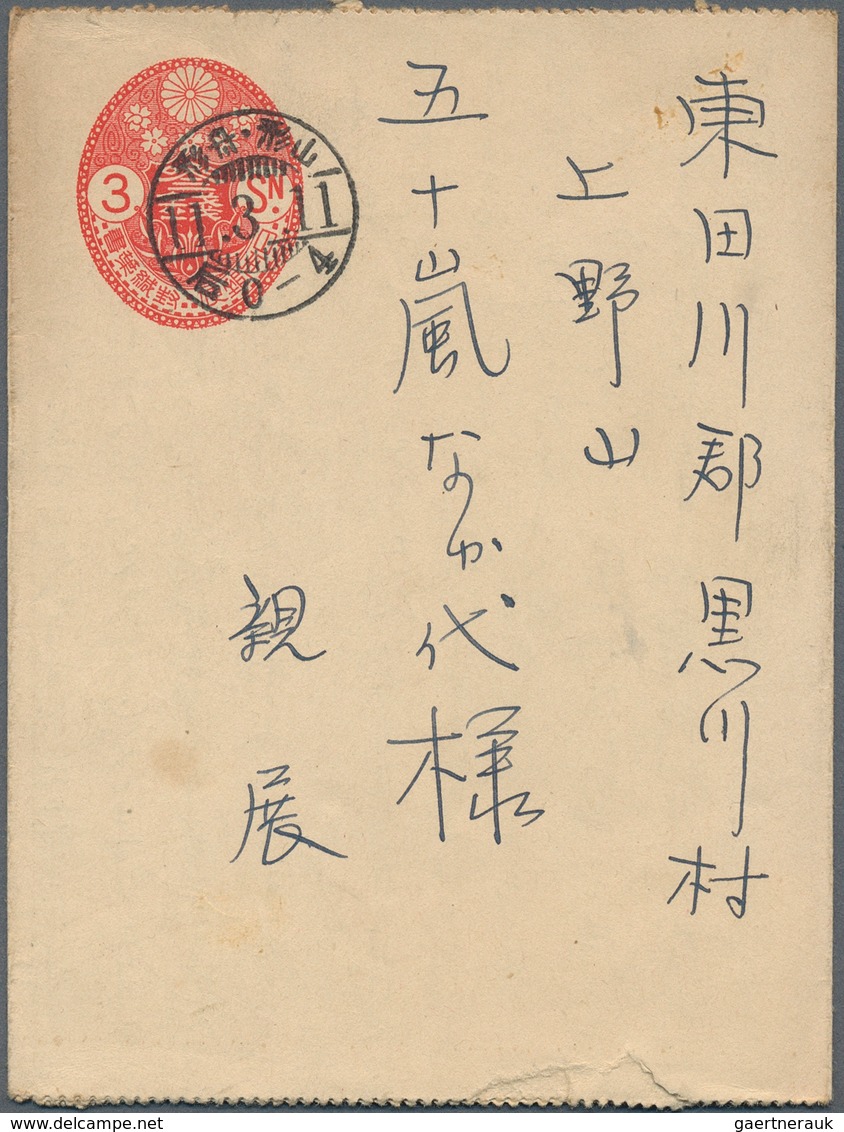 東田川郡黒川村
上野山
五十嵐なか代様
親展
3
SN.
11.3.11
0-4
gaertnerauk